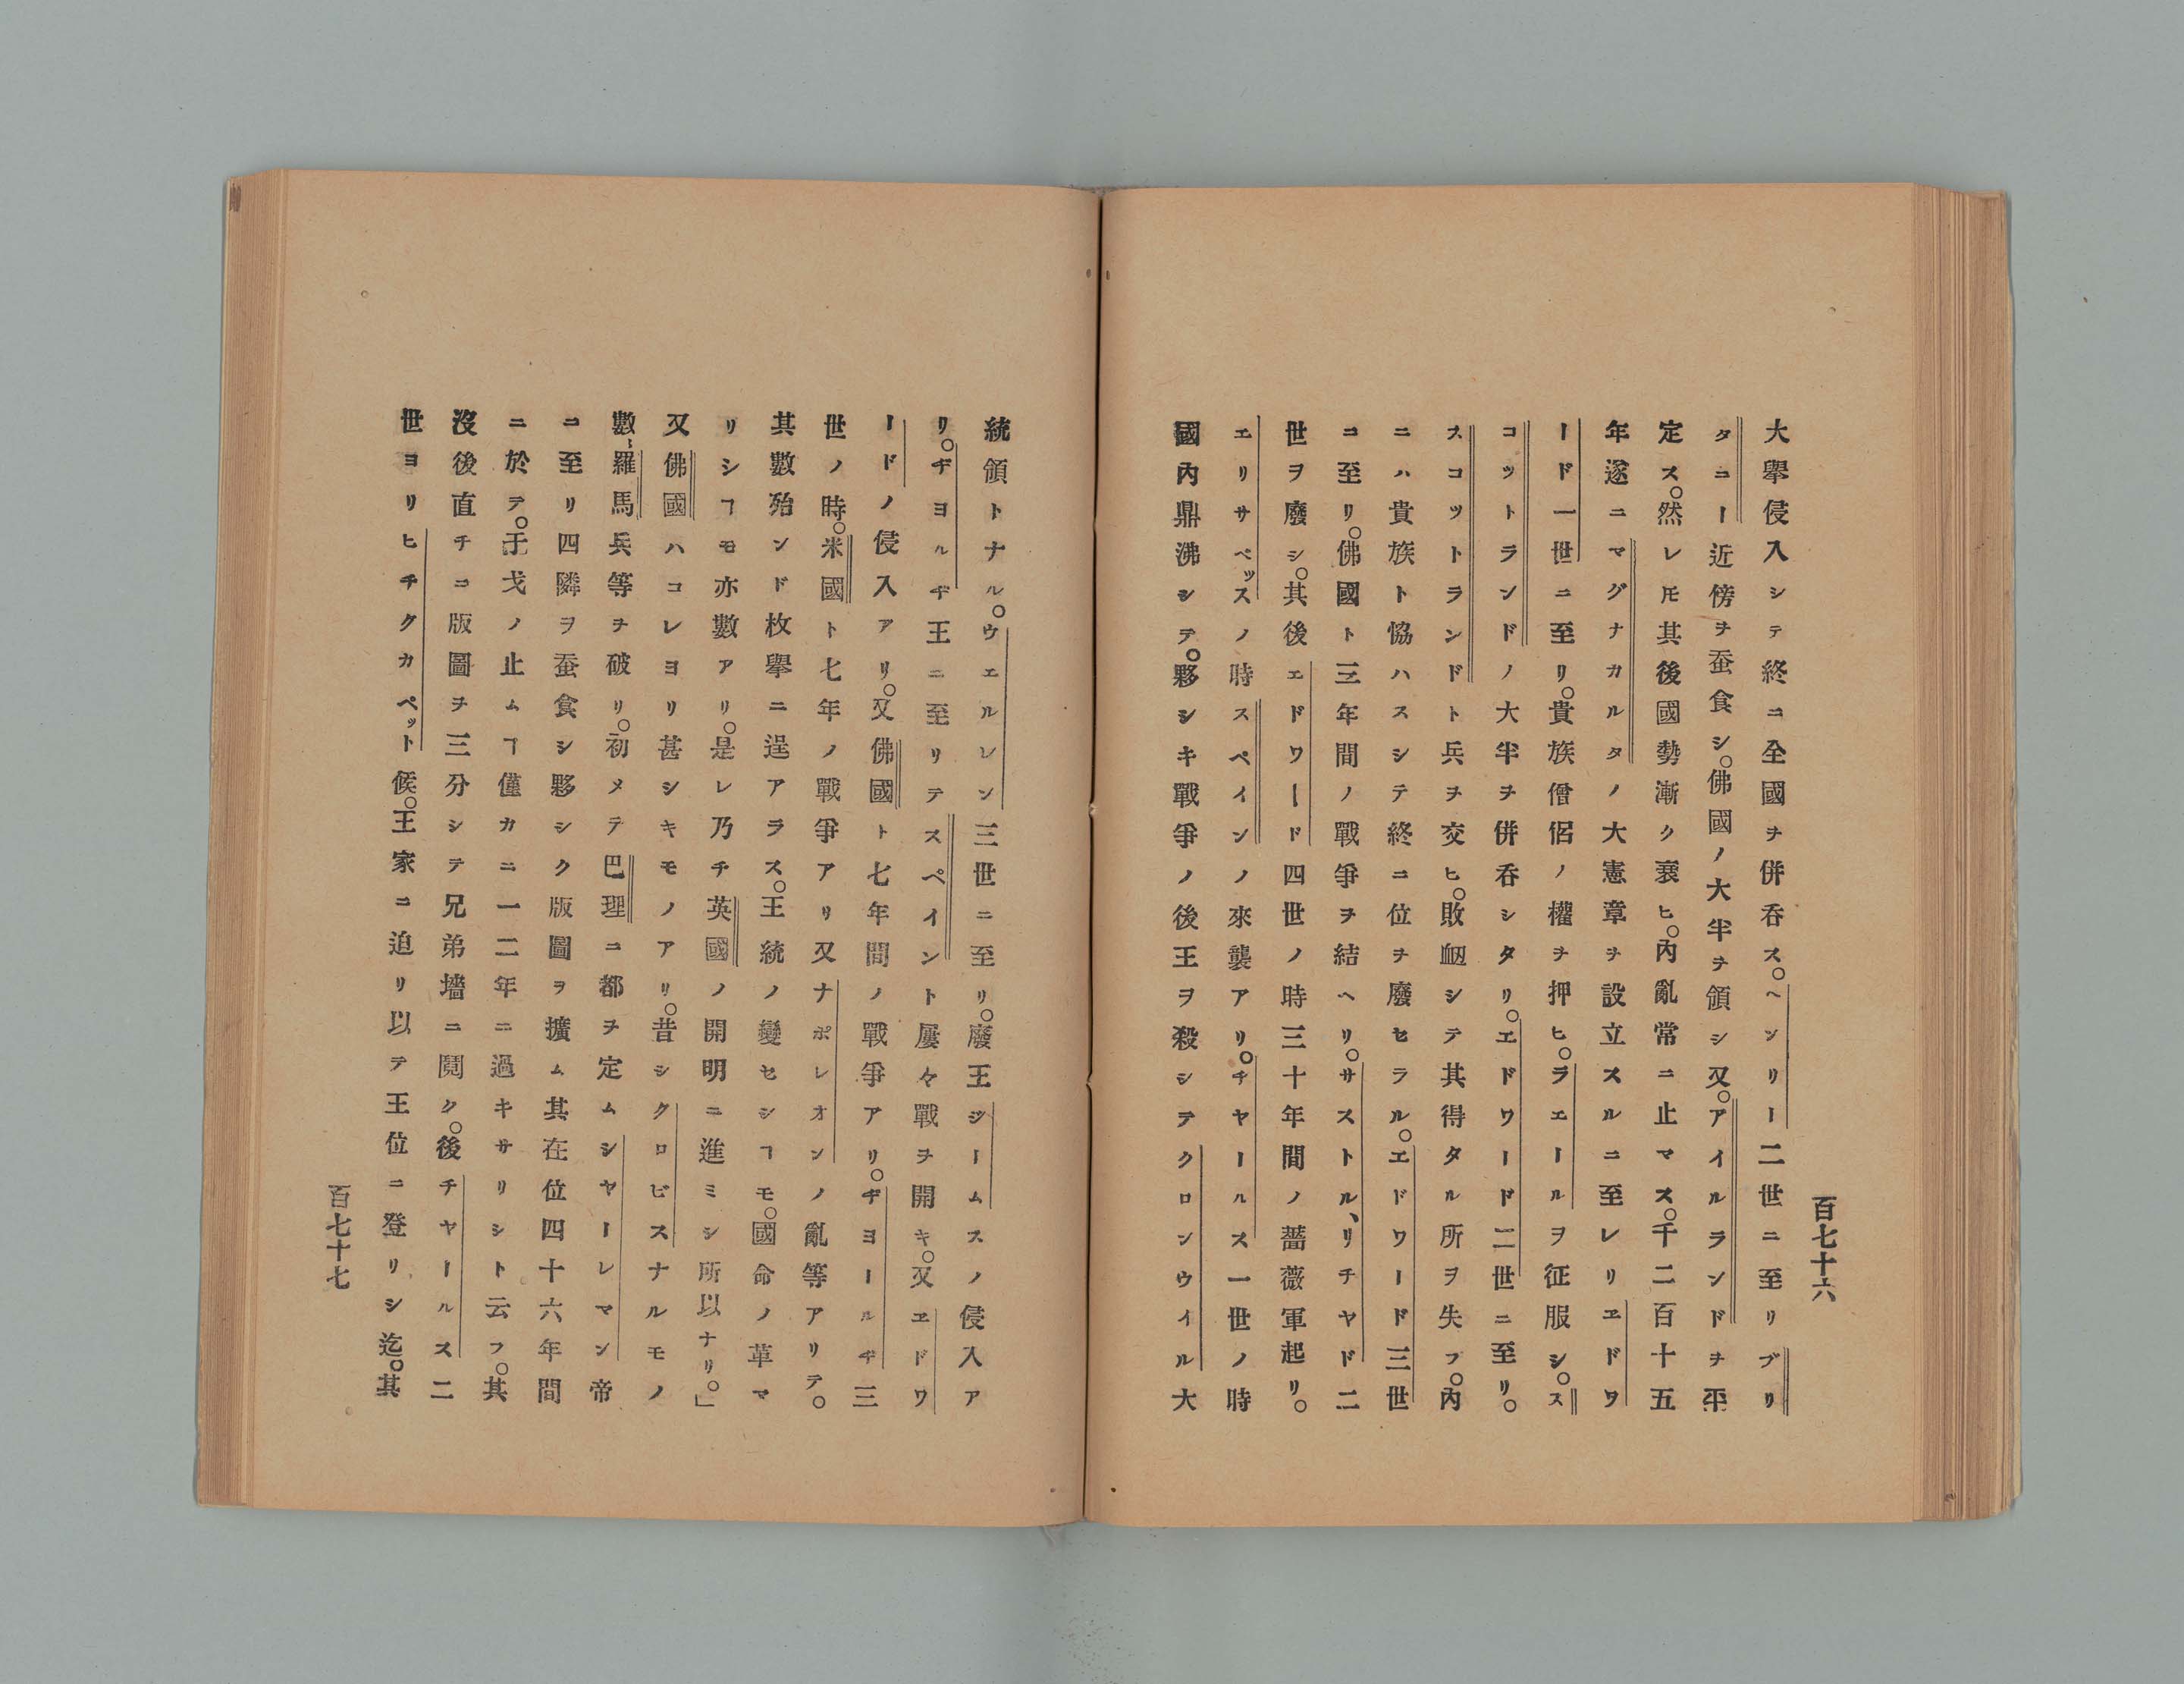 百七十六
大擧侵入シテ終ニ全國ヲ併呑ス。ヘンリー二世ニ至リブリ
タニー近傍ヲ蚕食シ。佛國ノ大半ヲ領シ又。アイルランドヲ平
定ス。然レ𪜈其後國勢漸ク衰ヒ。內亂常ニ止マス。千二百十五
年遂ニマグナカルタノ大憲章ヲ設立スルニ至レリヱドワ
ード一世ニ至リ。貴族僧侶ノ權ヲ押ヒ。ラエールヲ征服シ。ス
コットランドノ大半ヲ併呑シタリ。エドワード二世ニ至リ。
スコットランドト兵ヲ交ヒ。敗衂シテ其得タル所ヲ失フ。內
ニハ貴族ト恊ハスシテ終ニ位ヲ廢セラル。エドワード三世
ニ至リ。佛國ト三年間ノ戰爭ヲ結ヘリ。サストル、リチヤド二
世ヲ廢シ。其後エドワード四世ノ時三十年間ノ薔薇軍起リ。
エリサベッスノ時スペインノ來襲アリ。チヤールス一世ノ時
國內鼎沸シテ。夥シキ戰爭ノ後王ヲ殺シテクロンウイル大
統領トナル。ウエルレン三世ニ至リ。廢王ジームスノ侵入ア
リ。ヂヨルヂ王ニ至リテスペイント屢々戰ヲ開キ。又ヱドワ
ードノ侵入アリ。又佛國ト七年間ノ戰爭アリ。ヂヨールヂ三
世ノ時。米國ト七年ノ戰爭アリ又ナポレオンノ亂等アリテ。
其數殆ンド枚擧ニ遑アラス。王統ノ變セシヿモ。國命ノ革マ
リシヿモ亦數アリ。是レ乃チ英國ノ開明ニ進ミシ所以ナリ。」
又佛國ハコレヨリ甚シキモノアリ。昔シクロビスナルモノ
數〻羅馬兵等ヲ破リ。初メテ巴理ニ都ヲ定ムシヤーレマン帝
ニ至リ四隣ヲ蚕食シ夥シク版圖ヲ擴ム其在位四十六年間
ニ於テ。于戈ノ止ムヿ僅カニ一二年ニ過キサリシト云フ。其
沒後直チニ版圖ヲ三分シテ兄弟墻ニ鬩ク。後チヤールス二
世ヨリヒチクカペット候。王家ニ迫リ以テ王位ニ登リシ迄。其
百七十七